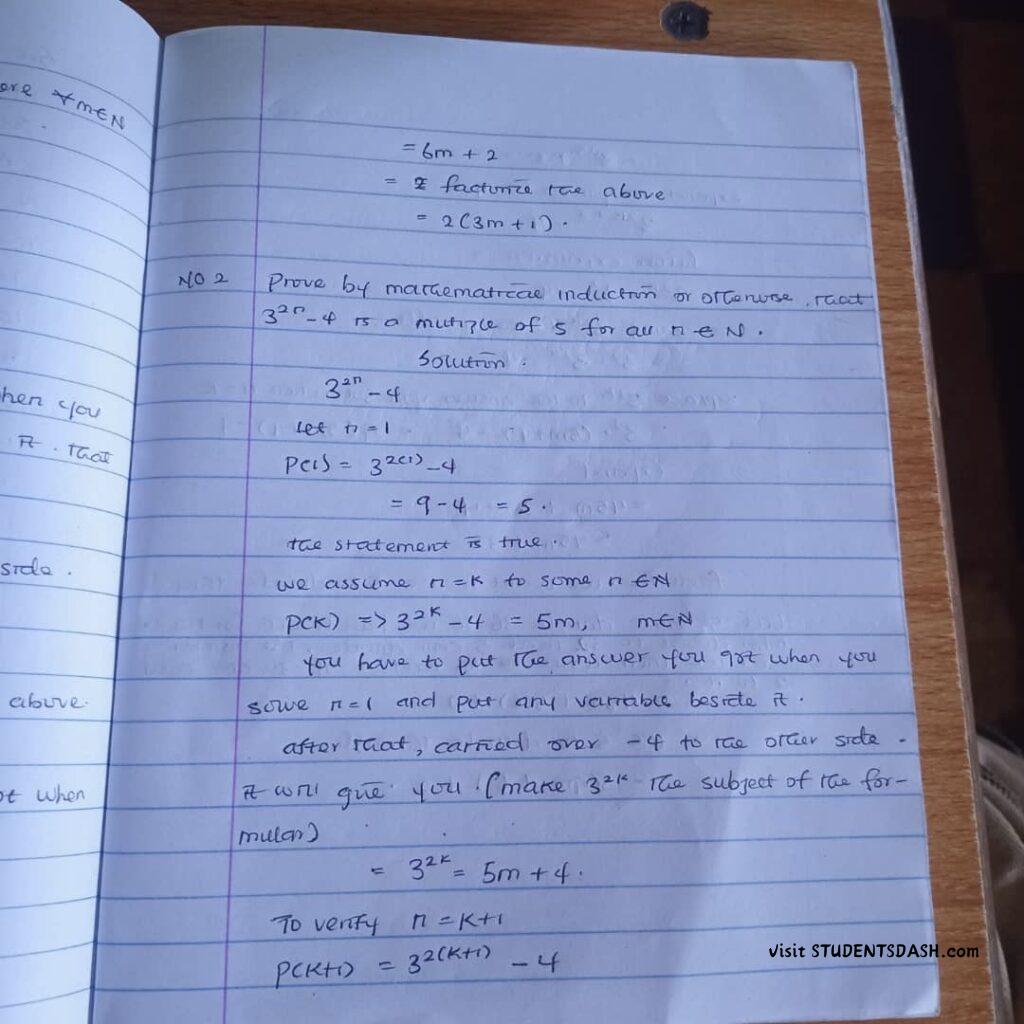 ere ∀m∈N
hen you
it. that
side.
above.
ot when
= 6m + 2
= factorize the above
= 2(3m+1).
NO 2 Prove by mathematical induction or otherwise, that
3^{2n} - 4 is a multiple of 5 for all n ∈ N.
Solution.
3^{2n} - 4
Let n = 1
P(1) = 3^{2(1)} - 4
= 9 - 4 = 5.
the statement is true.
we assume n = k to some n ∈ N
P(k) => 3^{2k} - 4 = 5m, m∈N
you have to put the answer you got when you
solve n = 1 and put any variable beside it.
after that, carried over -4 to the other side.
it will give you (make 3^{2k} the subject of the for-
mular)
= 3^{2k} = 5m + 4.
To verify n = k+1
P(k+1) = 3^{2(k+1)} - 4
visit STUDENTSDASH.com